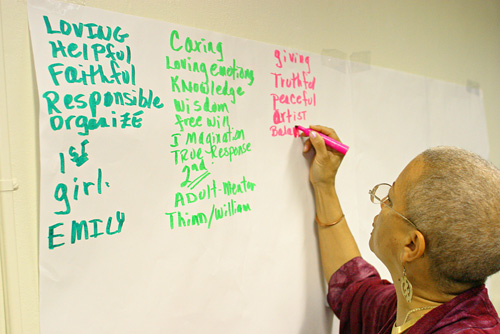 LOVING
Helpful
Faithful
Responsible
OrganizE
1st
girl.
EMILY
Caring
Loving emotions
Knowledge
Wisdom
free will
Imagination
TRUE Response
2nd
ADULT-Mentor
/William
giving
Truthful
peaceful
artist